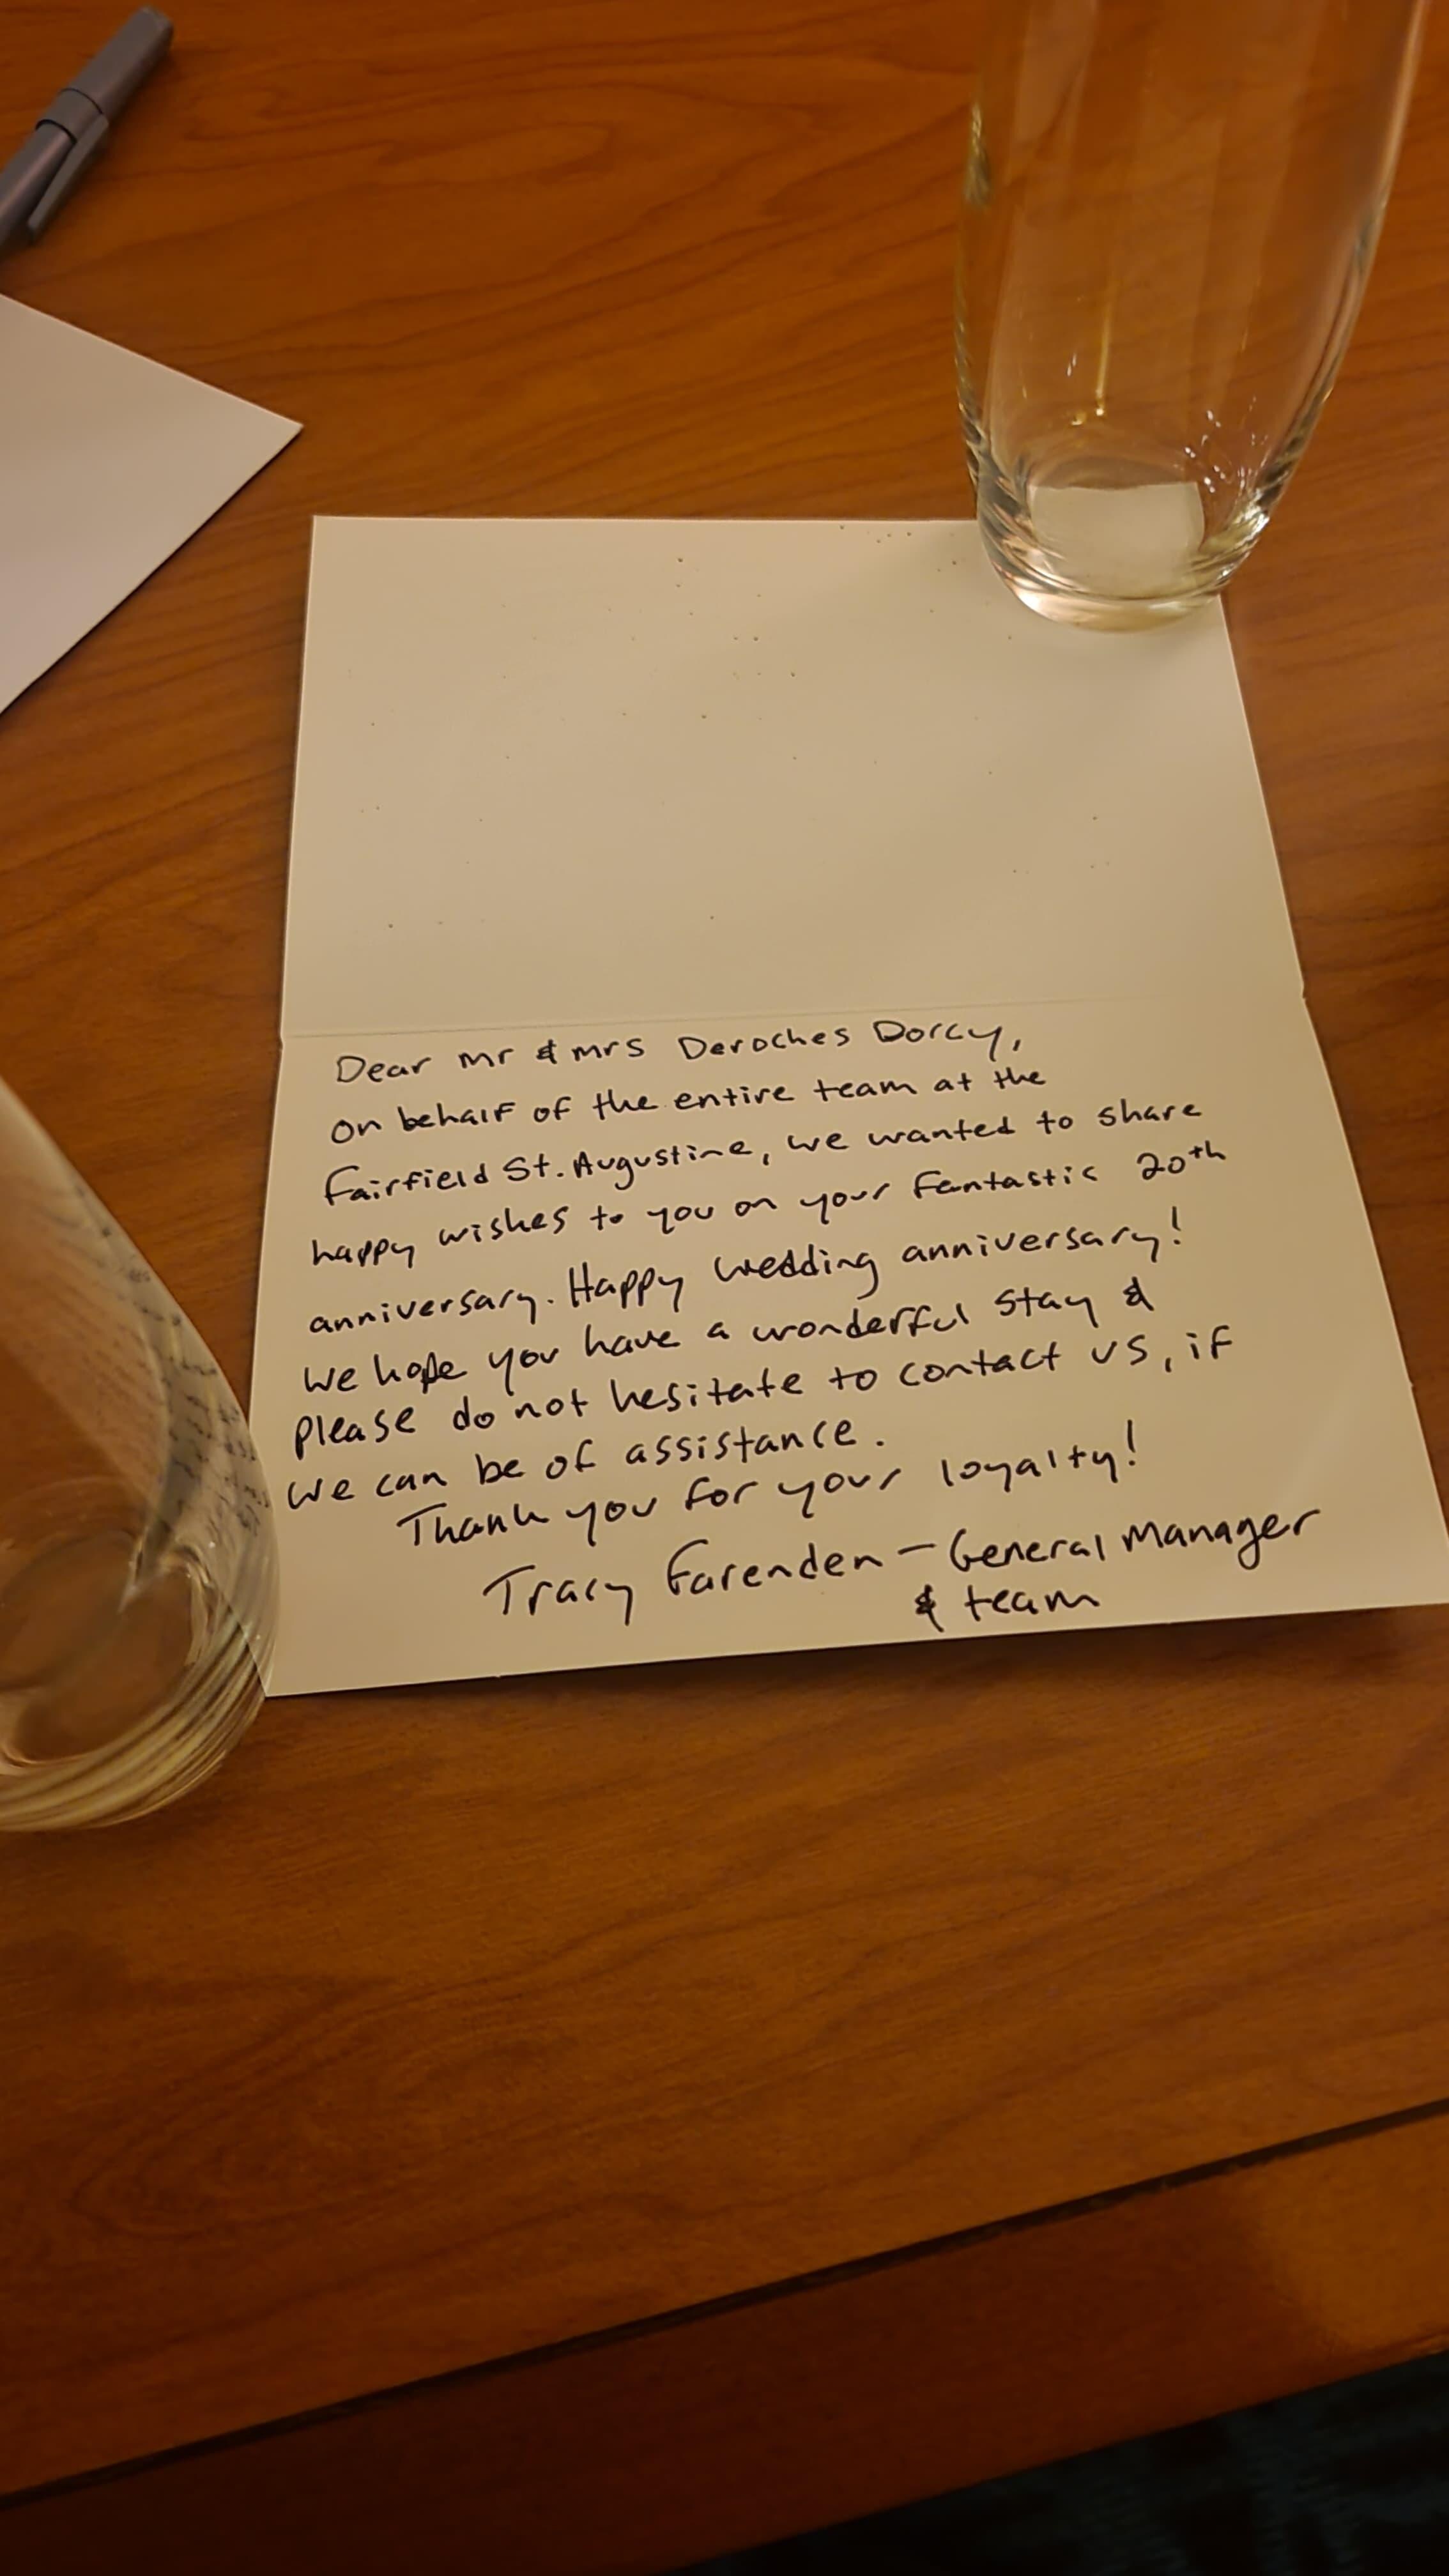 Dear Mr & Mrs Deroches Dorcy,
on behalf of the entire team at the
Fairfield St. Augustine, we wanted to share
happy wishes to you on your fantastic 20th
anniversary. Happy wedding anniversary!
We hope you have a wonderful stay &
please do not hesitate to contact us, if
we can be of assistance.
Thank you for your loyalty!
Tracy Farenden - General Manager
& team